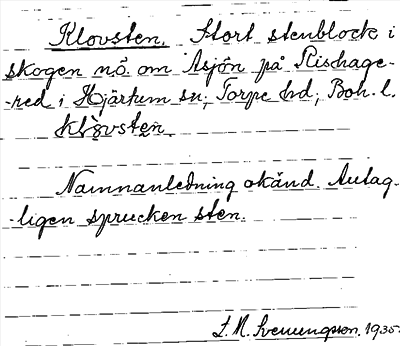 Klovsten. Stort stenblock i
skogen nö om Åsjön på Rishage-
-red i Hjärtum sn, Torpe hd, Boh. l.
Klovsten.
Namnanledning okänd. Antag-
-ligen sprucken sten.
1935.